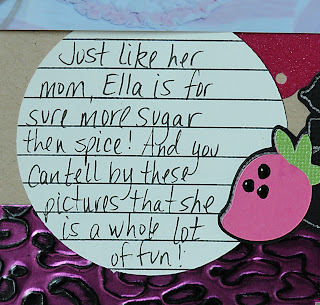 Just like her
mom, Ella is for
sure more sugar
then spice! And you
can tell by these
pictures that she
is a whole lot
of fun!